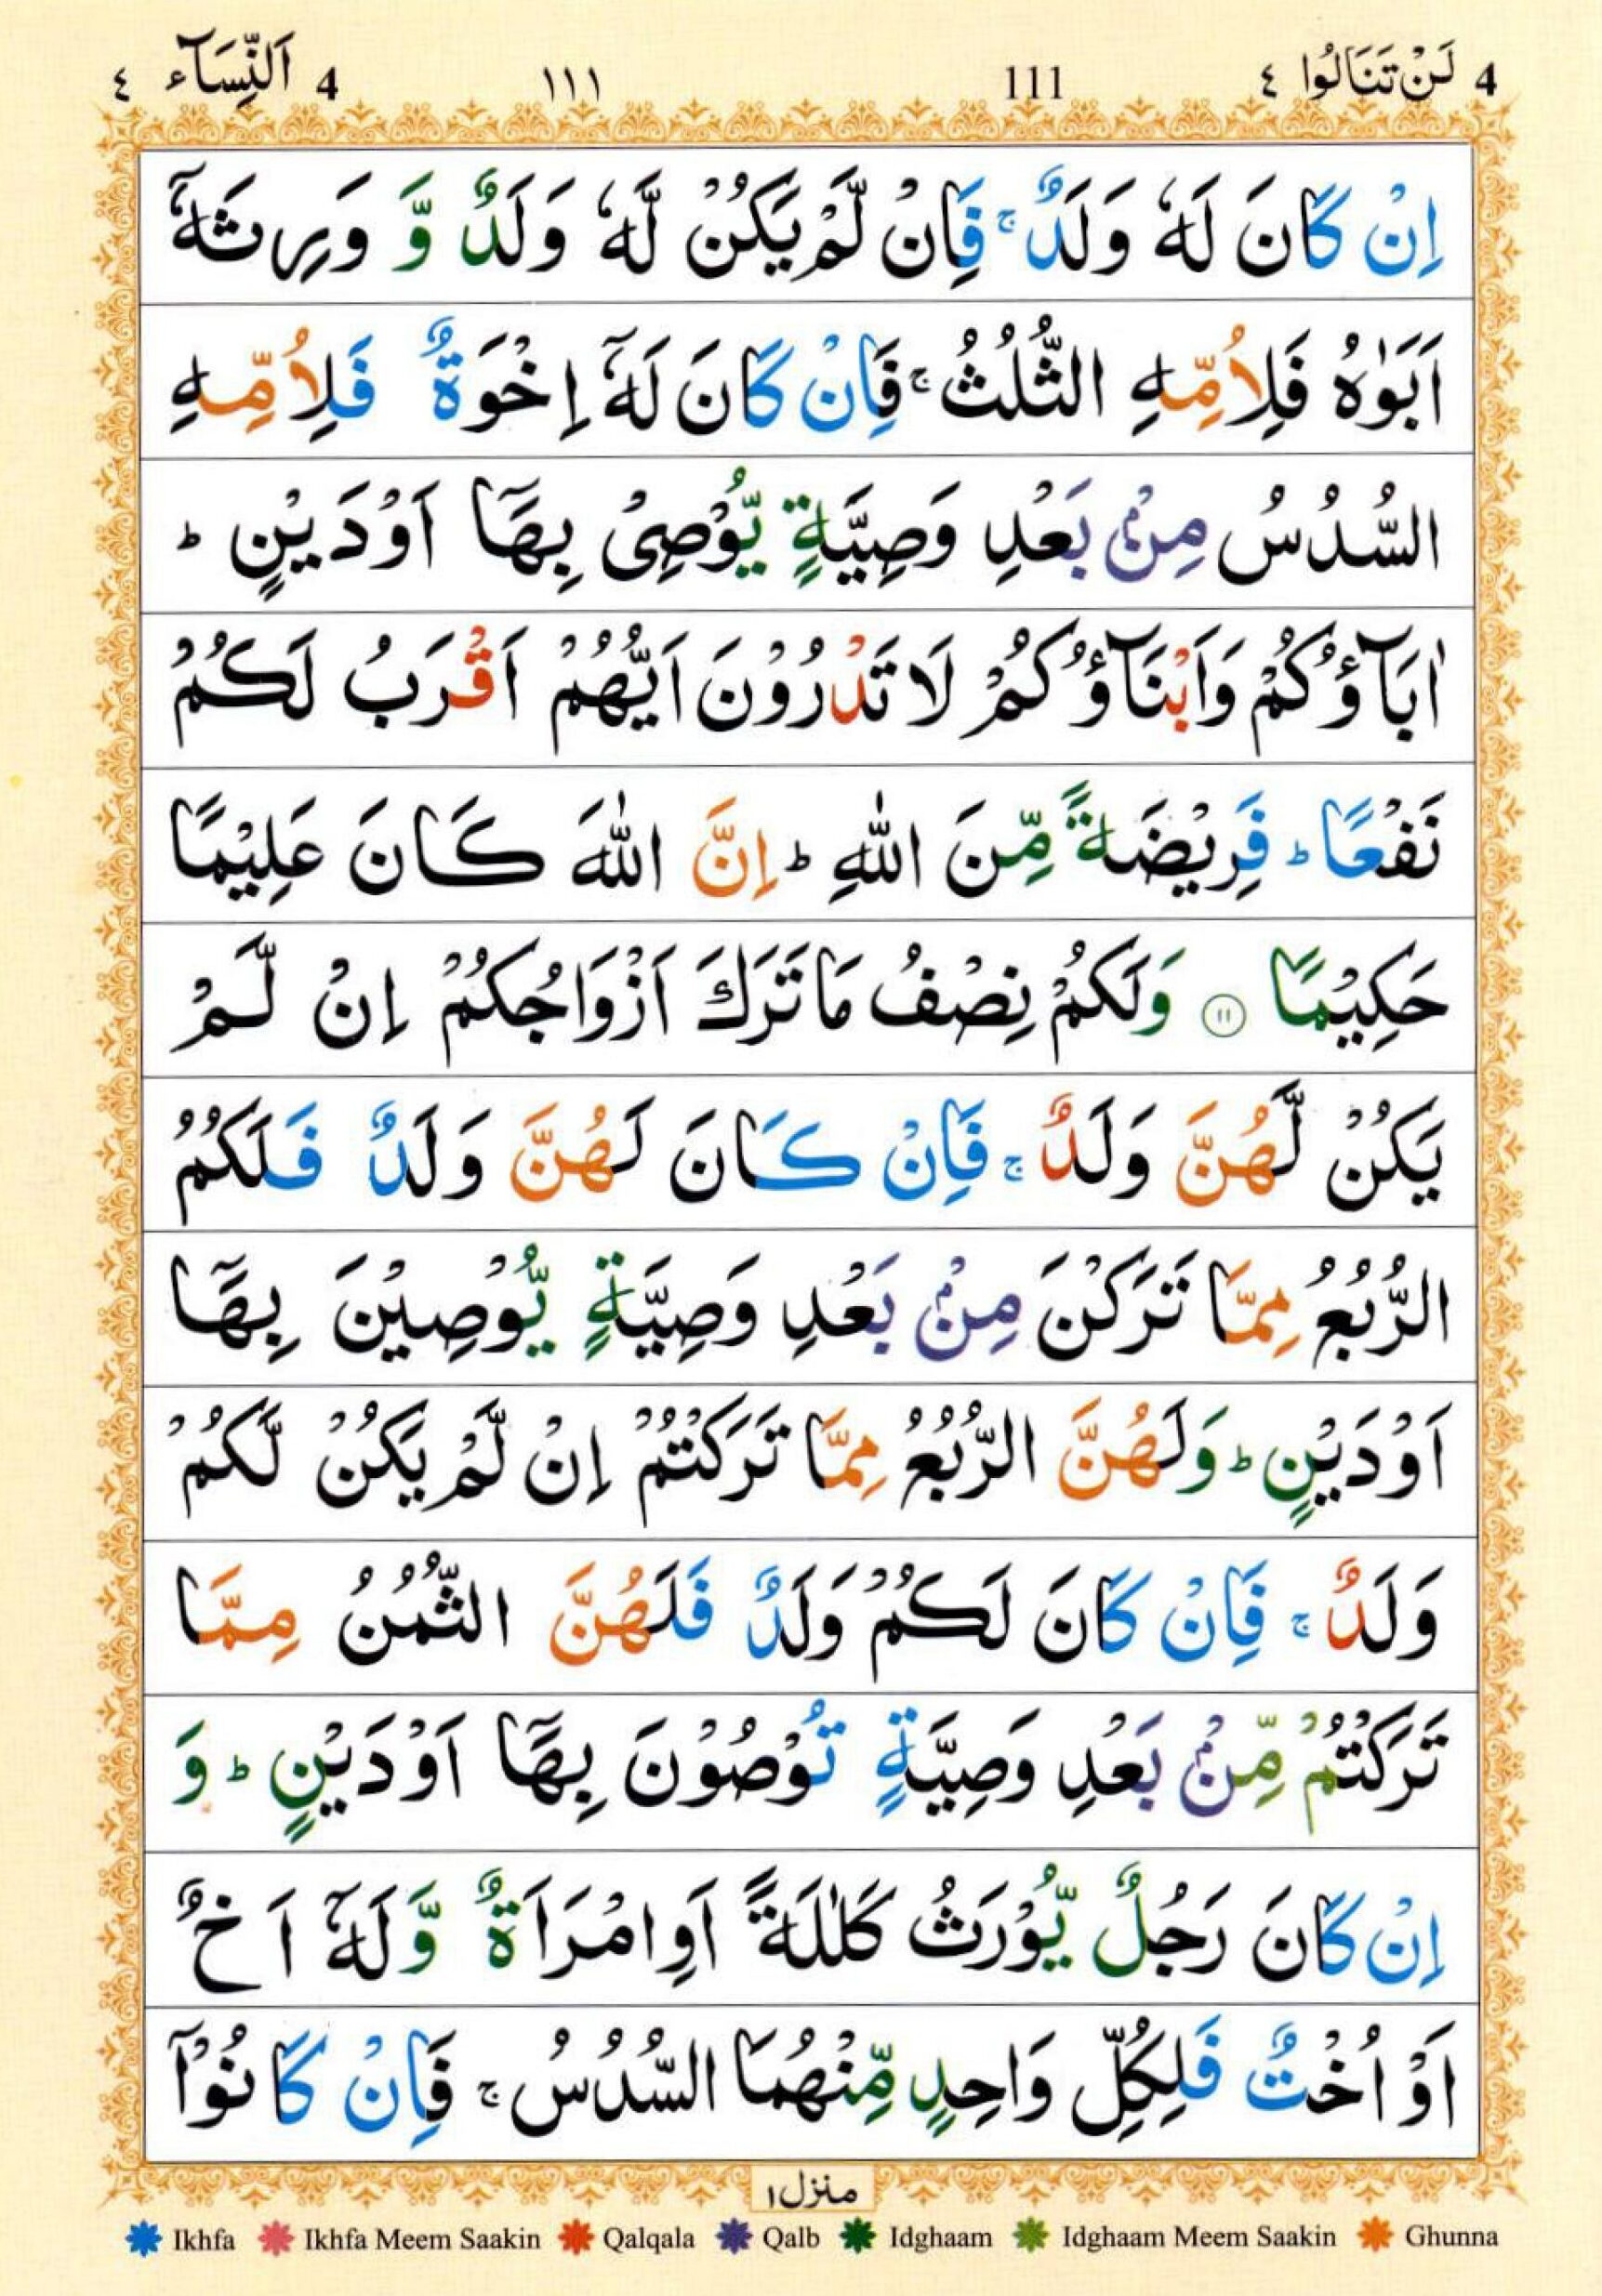 4 لَنْ تَنَالُوا ٤ 111 ١١١ 4 اَلنِّسَآء ٤
اِنْ كَانَ لَهٗ وَلَدٌ ۚ فَاِنْ لَّمْ يَكُنْ لَّهٗ وَلَدٌ وَّ وَرِثَهٗۤ
اَبَوٰهُ فَلِاُمِّهِ الثُّلُثُ ۚ فَاِنْ كَانَ لَهٗۤ اِخْوَةٌ فَلِاُمِّهِ
السُّدُسُ مِنْۢ بَعْدِ وَصِيَّةٍ يُّوْصِىْ بِهَاۤ اَوْ دَيْنٍ ؕ
اٰبَآؤُكُمْ وَاَبْنَآؤُكُمْ لَا تَدْرُوْنَ اَيُّهُمْ اَقْرَبُ لَكُمْ
نَفْعًا ؕ فَرِيْضَةً مِّنَ اللّٰهِ ؕ اِنَّ اللّٰهَ كَانَ عَلِيْمًا
حَكِيْمًا ۝١١ وَلَكُمْ نِصْفُ مَا تَرَكَ اَزْوَاجُكُمْ اِنْ لَّمْ
يَكُنْ لَّهُنَّ وَلَدٌ ۚ فَاِنْ كَانَ لَهُنَّ وَلَدٌ فَلَكُمُ
الرُّبُعُ مِمَّا تَرَكْنَ مِنْۢ بَعْدِ وَصِيَّةٍ يُّوْصِيْنَ بِهَاۤ
اَوْ دَيْنٍ ؕ وَلَهُنَّ الرُّبُعُ مِمَّا تَرَكْتُمْ اِنْ لَّمْ يَكُنْ لَّكُمْ
وَلَدٌ ۚ فَاِنْ كَانَ لَكُمْ وَلَدٌ فَلَهُنَّ الثُّمُنُ مِمَّا
تَرَكْتُمْ مِّنْۢ بَعْدِ وَصِيَّةٍ تُوْصُوْنَ بِهَاۤ اَوْ دَيْنٍ ؕ وَ
اِنْ كَانَ رَجُلٌ يُّوْرَثُ كَلٰلَةً اَوِ امْرَاَةٌ وَّلَهٗۤ اَخٌ
اَوْ اُخْتٌ فَلِكُلِّ وَاحِدٍ مِّنْهُمَا السُّدُسُ ۚ فَاِنْ كَانُوْۤا
منزل ١
Ikhfa Ikhfa Meem Saakin Qalqala Qalb Idghaam Idghaam Meem Saakin Ghunna